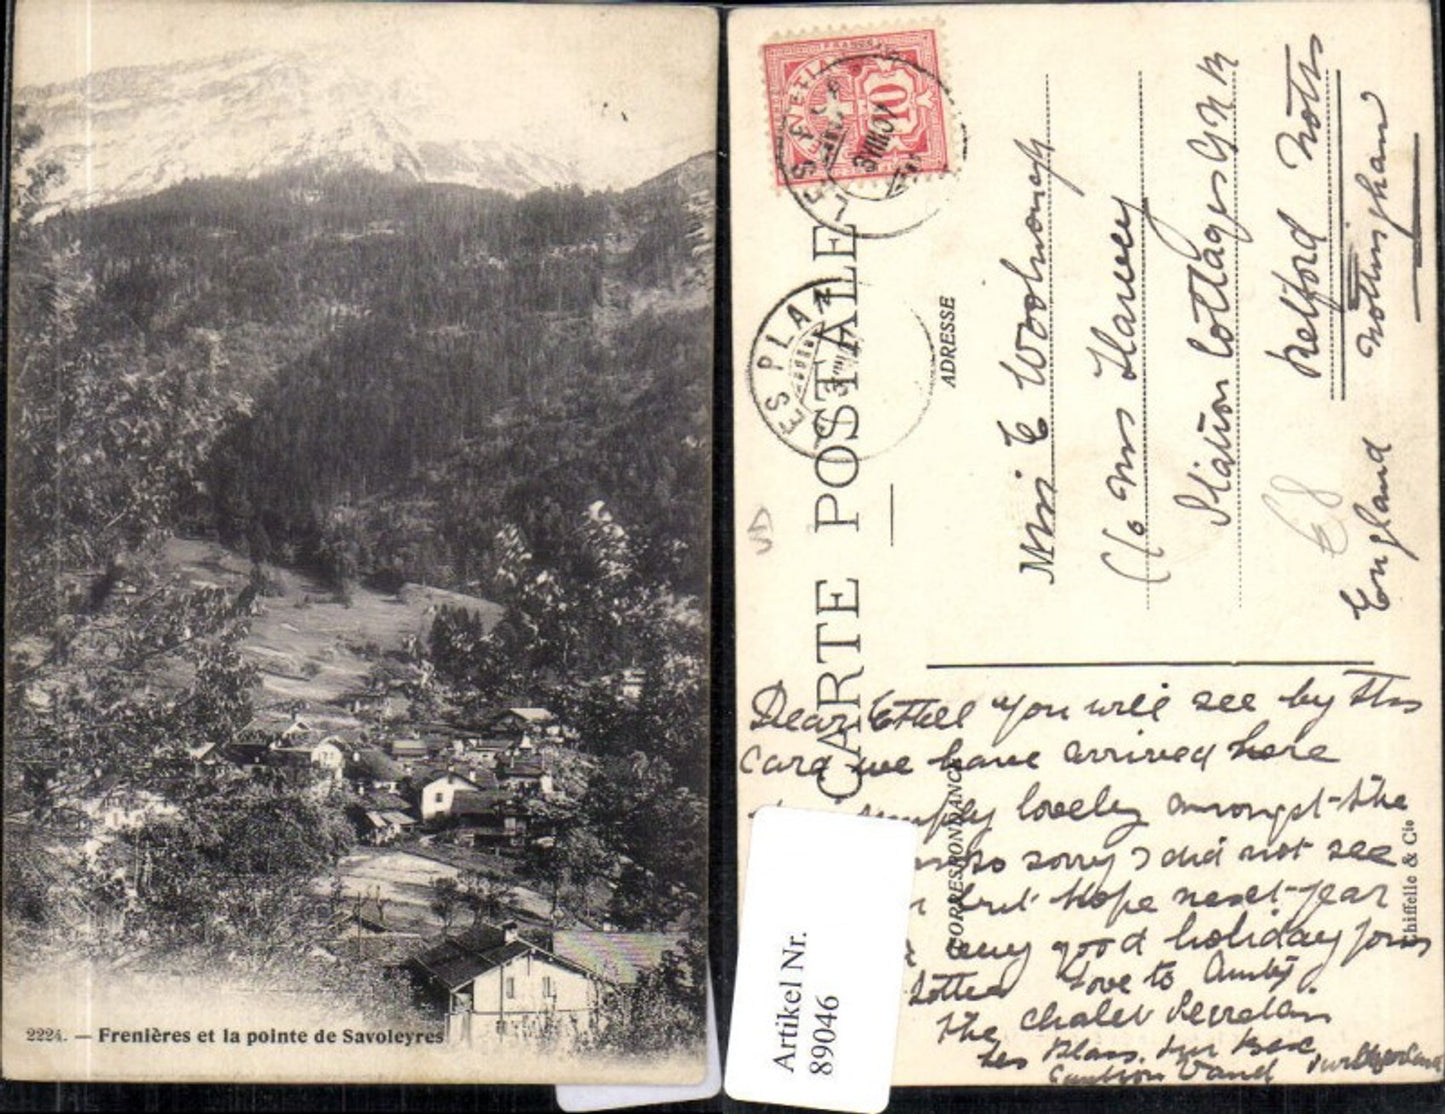 2224. — Frenières et la pointe de Savoleyres
CARTE POSTALE
ADRESSE
CORRESPONDANCE
LES PLANS
LES PLANS
10
Miss E Woolnough
C/o Mrs Harvey
Station Cottages G N R
Retford Notts
Nottingham
England
68
Dear Ethel You will see by this
card we have arrived here
simply lovely amongst the
so sorry I did not see
but hope next year
very good holiday yours
Lottea Love to Aunty
The Chalet
Les Plans. Sur Bex
Canton Vaud Switzerland
Artikel Nr.
89046